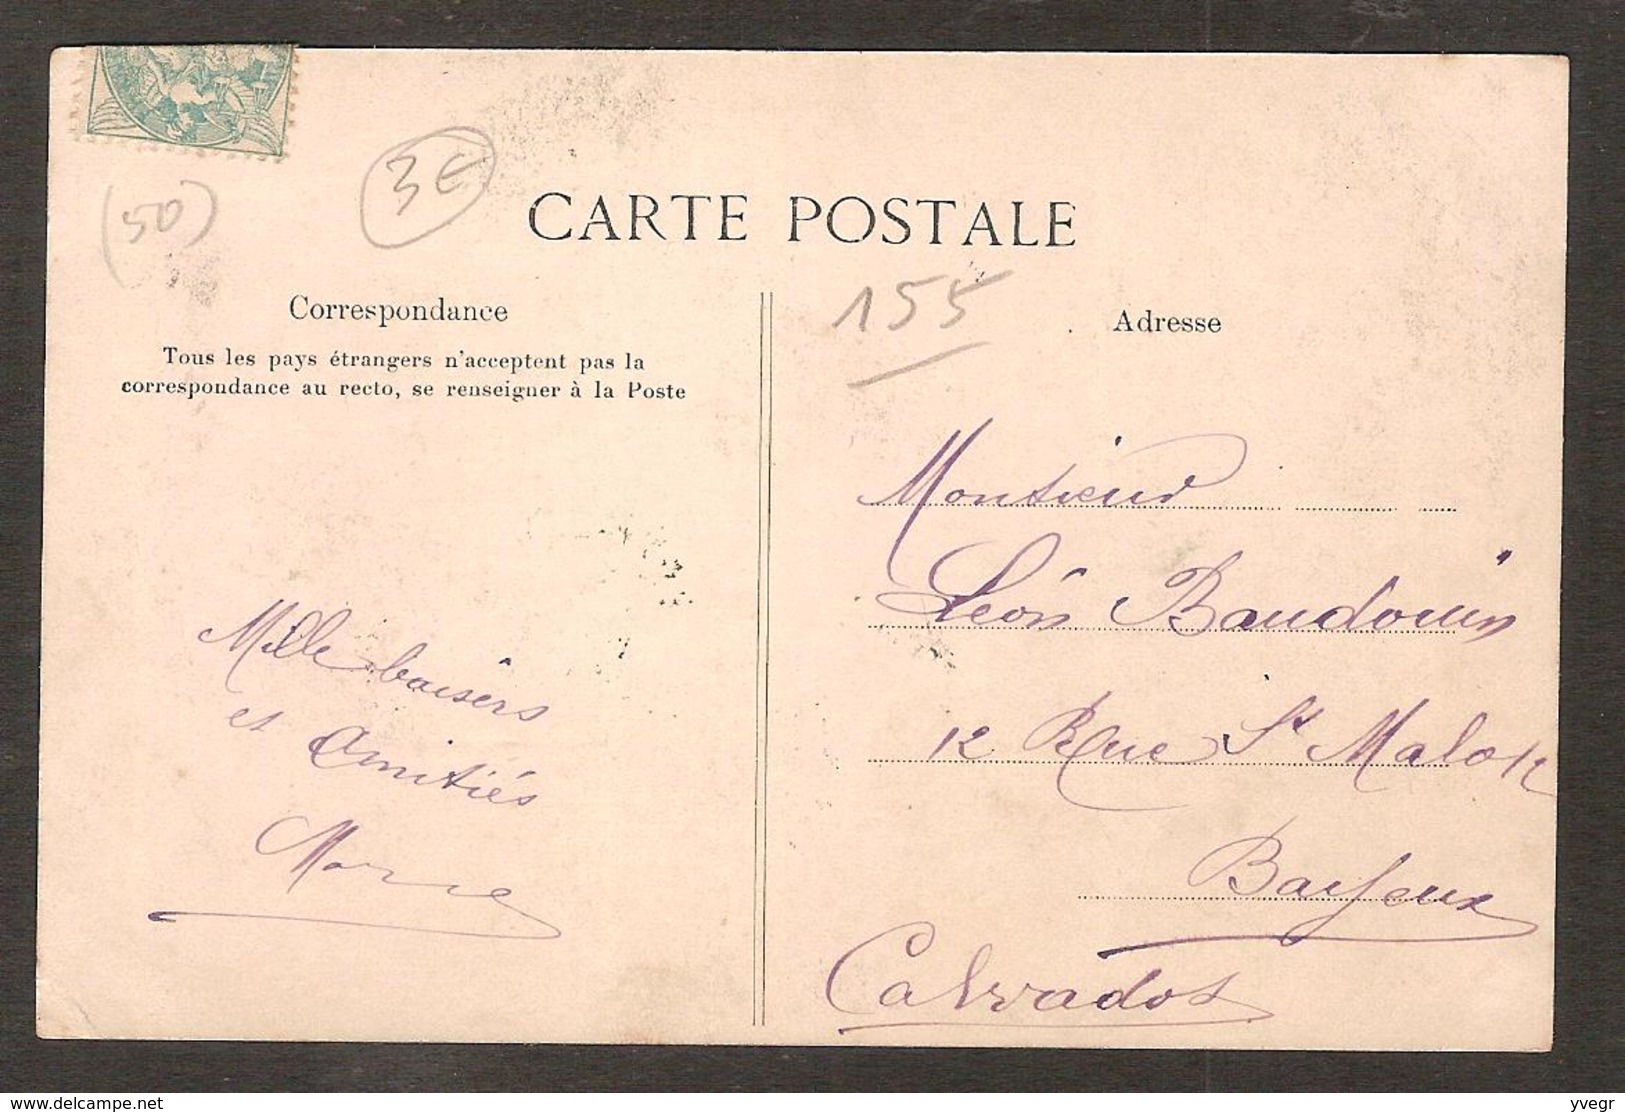 (50)
3E
CARTE POSTALE
155
Correspondance
Tous les pays étrangers n'acceptent pas la
correspondance au recto, se renseigner à la Poste
Mille baisers
et Amitiés
Adresse
Monsieur
Léon Baudouin
12 Rue St Malo 12
Bayeux
Calvados
delcampe.net
yvegr